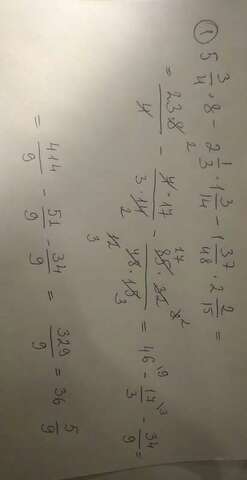 ① 5 3/4 · 8 - 2 1/3 · 1 3/14 - 1 37/48 · 2 2/15 =
= 23·8/4 - 7·17/3·14 2 - 17 85·32 8 2/12 48·15 3 3 = 46 \9 - 17/3 \3 - 34/9 =
= 414/9 - 51/9 - 34/9 = 329/9 = 36 5/9